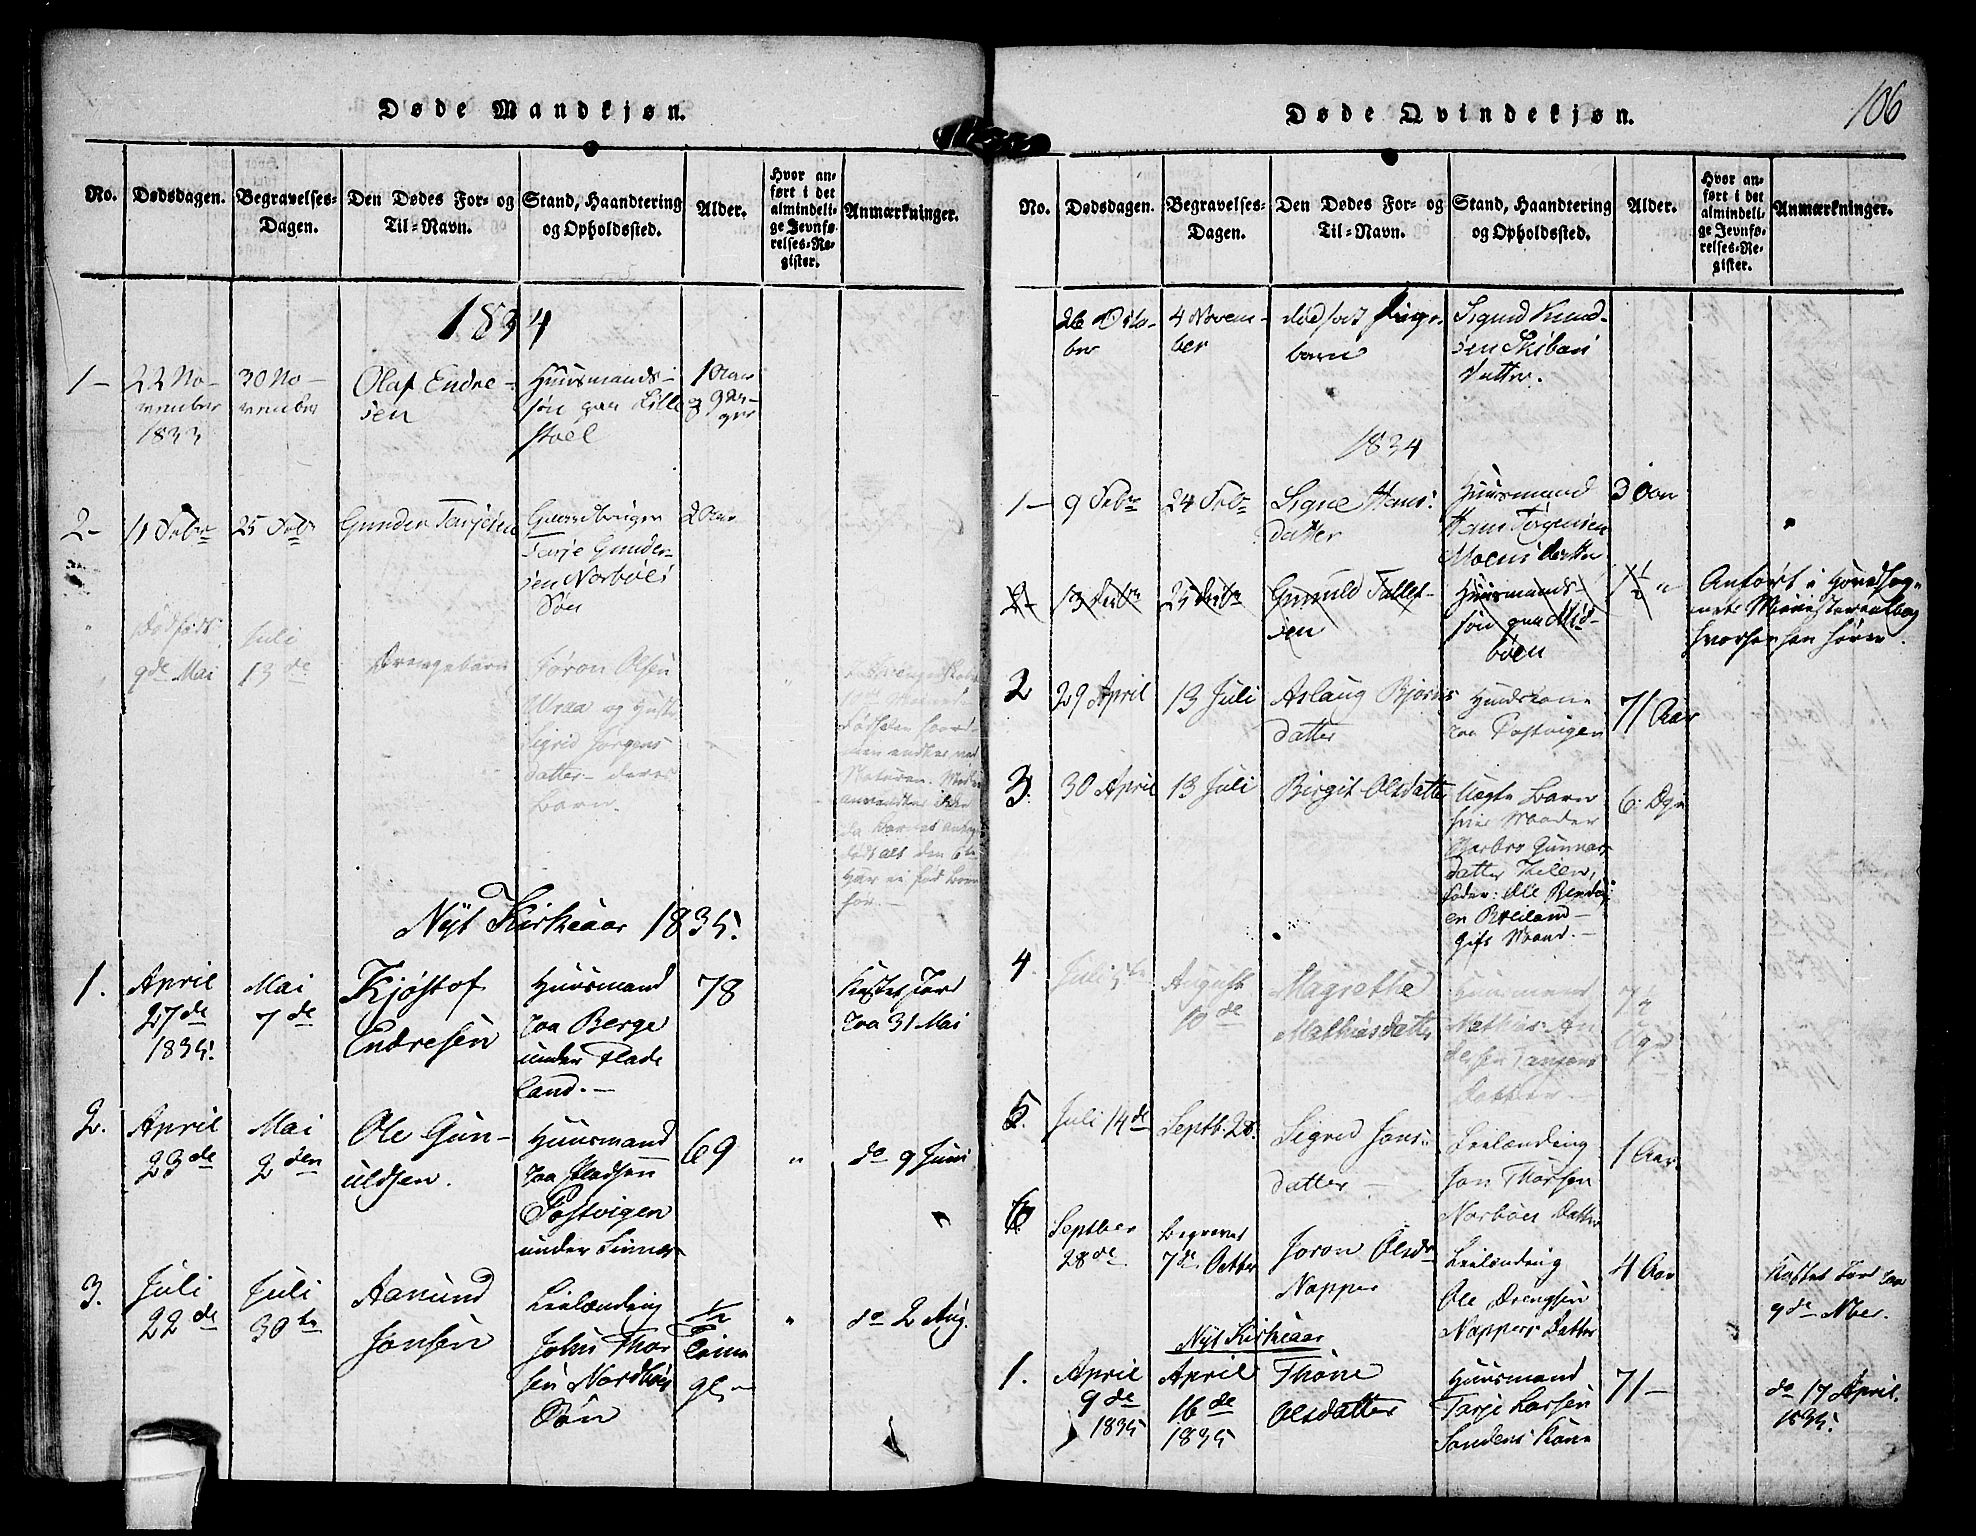 106
Døde Mandkjøn.
No.
Dødsdagen.
Begravelses-
Dagen.
Den Dødes For- og
Til-Navn.
Stand, Haandtering
og Opholdssted.
Alder.
Hvor an-
ført i det
almindeli-
ge Jevnfø-
relses-Re-
gister.
Anmærkninger.
1834
1-
22 No-
vember
1833
30 No-
vember
Olaf Endre-
sen
Huusmands-
søn paa Lille
støel
1 Aar
9 Da-
ger
2-
11 Febr
25 Febr
Gunder Tarjesen
Gaardbruger
Tarje Gunder-
sen Norbøes
Søn
2 Aar
Dødføds
9de Mai
Juli
13de
Drengebarn
Jøron Olsen
Uraa og Hustr
Sigrid Jørgens
datter - deres
Barn.
Nyt Kirkeaar 1835.
1.
April
27de
1835.
Mai
7de
Kjøstof
Endresen
Huusmand
paa Berge
under Flade
land.-
78
Kastet Jord
paa 31 Mai
2.
April
23de
Mai
2den
Ole Gun-
uldsen.
Huusmand
paa Pladsen
Postvigen
under Sinnes
69
"
do 9 Juni
3.
Juli
22de
Juli
30te
Aanund
Jonsen
Leilænding
Johns Thor
sen Nordbøe
Søn
1/2
Time
gl.
"
do 2 Aug.
Døde Qvindekjøn.
No.
Dødsdagen.
Begravelses-
Dagen.
Den Dødes For- og
Til-Navn.
Stand, Haandtering
og Opholdssted.
Alder.
Hvor an-
ført i det
almindeli-
ge Jevnfø-
relses-Re-
gister.
Anmærkninger.
26 Octo-
ber
4 Novem-
ber
dødfødt Pige-
barn
Sigurd Knud-
sen
Datter.
1834
1-
9 Febr
24 Febr
Signe Hans-
datter
Huusmand
Hans Jørgensen
Moens Datter
3 Aar
2-
13 Febr
25 Febr
Gunuld Tallef-
sen
Huusmands-
søn paa Mid-
bøen
1 1/2 "
Anført i Hovedsog-
nets Ministerialbog
hvorhen han hører.
2
29 April
13 Juli
Aslaug Bjørns
datter
Huuskone
paa Postvigen
71 Aar
3.
30 April
13 Juli
Birgit Olsdatter
Uægte Barn
hvis Moder
Barbro Gunnars
datter
fader: Ole
en Breiland-
gift Mand.-
6. Dge
4.
Juli 5te
August
10de
Magrethe
Mathiasdatter
Huusmand
Mathias An
dersen Tangens
Datter.-
7
Dge
5.
Juli 14de
Septb. 28.
Sigrid Jons-
datter-
Leilænding
Jon Thorsen
Norbøes Datter
1 Aar
6
Septber
28de
Begravet
7de Octber
Joron Olsdr
Napper
Leilænding
Ole Drengsen
Nappers Datter
4 Aar
Kastet Jord paa
9de Nber.
Nyt Kirkeaar
1.
April
9de
1835
April
16de
1835
Thone
Olsdatter
Huusmand
Tarje Larsen
Sandens Kone
71-
do 17 April
1835.